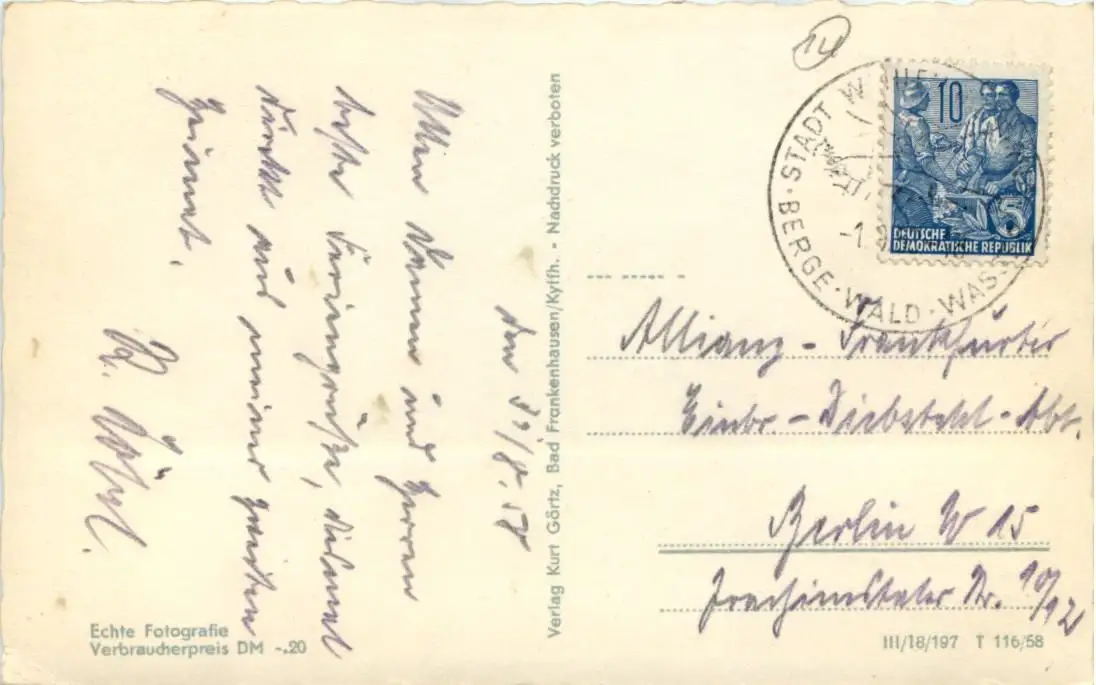 den 31/8.58
Meine Damen und Herren
beste Feriengrüße, diesmal
direkt aus meiner zweiten
Heimat.
Verlag Kurt Görtz, Bad Frankenhausen/Kyffh. - Nachdruck verboten
Echte Fotografie
Verbraucherpreis DM -.20
14
STADT
BERGE · WALD · WASS
-1.
10
5
DEUTSCHE
DEMOKRATISCHE REPUBLIK
Allianz - Frankfurter
Einbr - Diebstahl - Abt.
Berlin W 15
Joachimstaler Str. 10/12
III/18/197 T 116/58